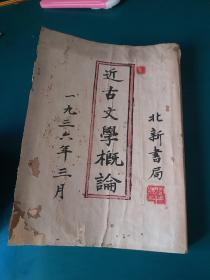 北新書局
近古文學概論
一九三六年三月